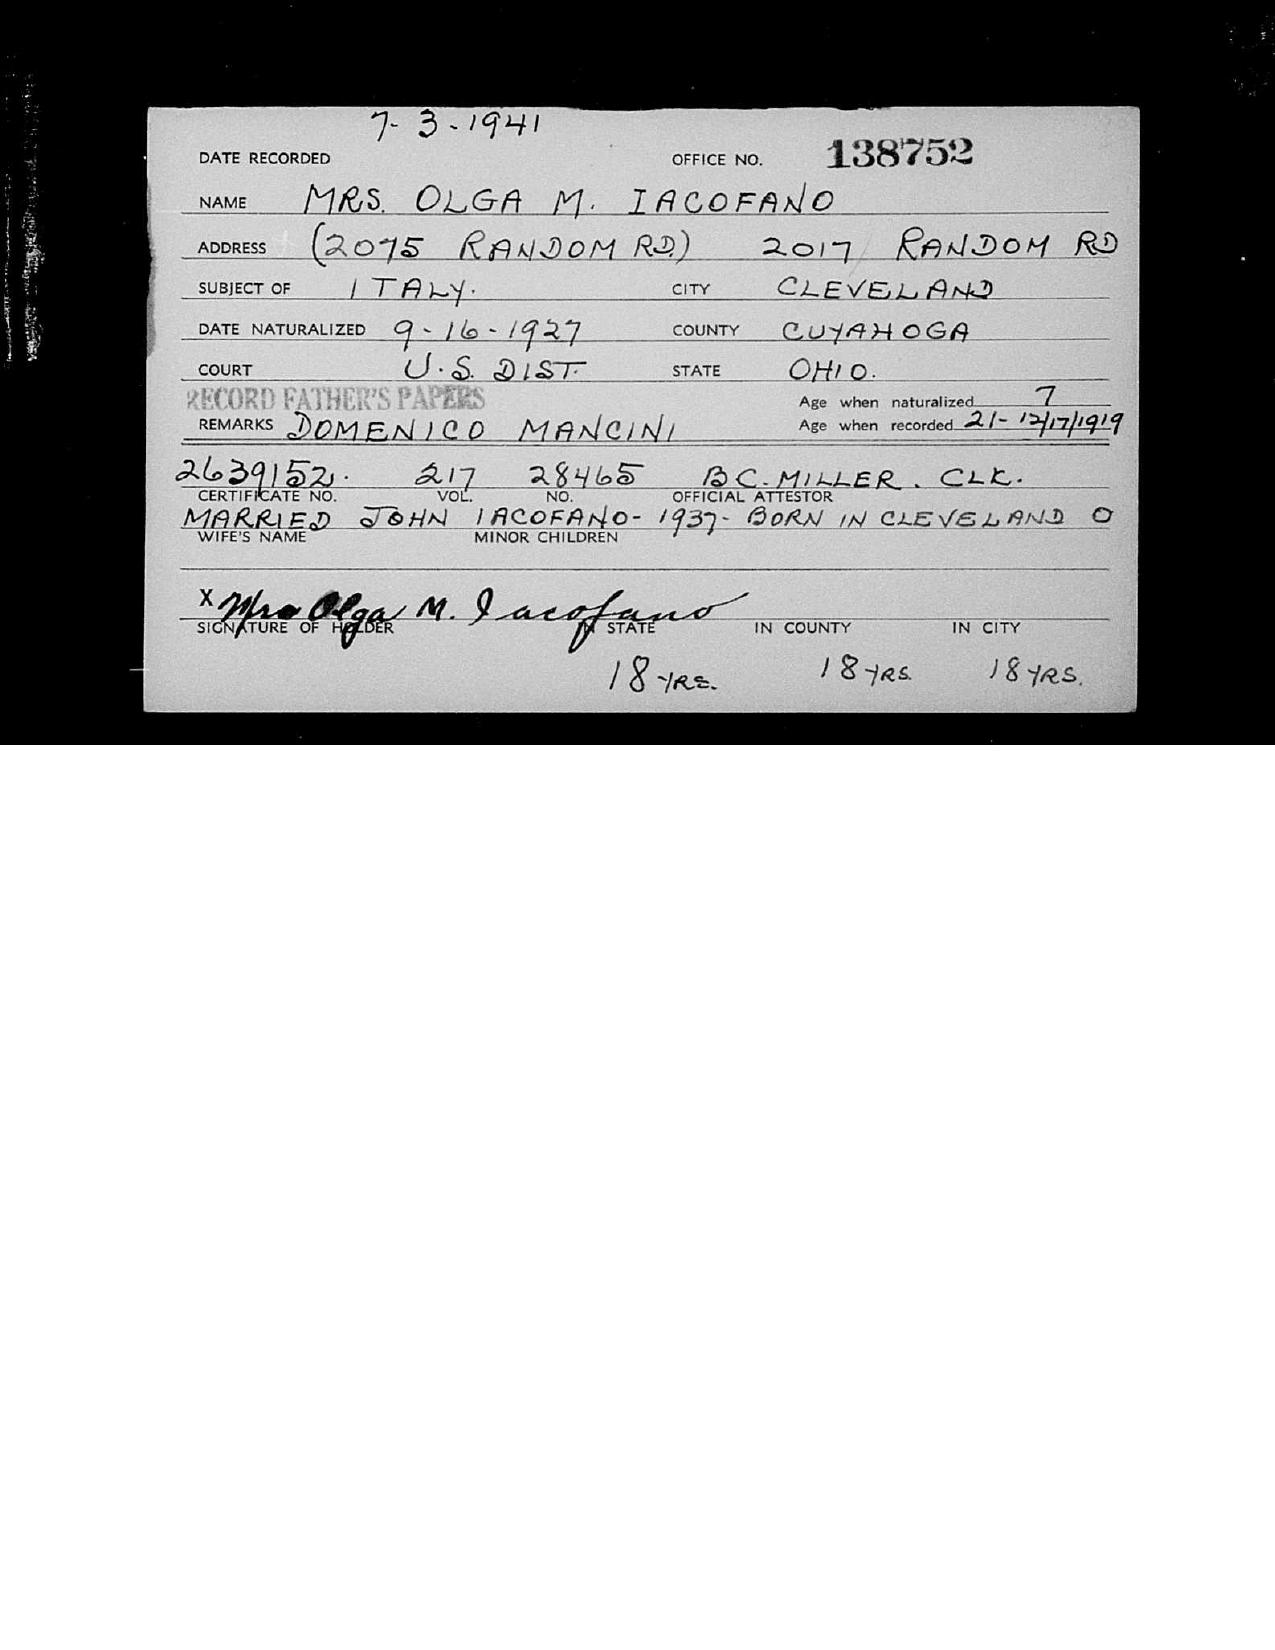 7-3-1941
DATE RECORDED OFFICE NO. 138752
NAME MRS. OLGA M. IACOFANO
ADDRESS (2075 RANDOM RD.) 2017 RANDOM RD
SUBJECT OF ITALY. CITY CLEVELAND
DATE NATURALIZED 9-16-1927 COUNTY CUYAHOGA
COURT U.S. DIST. STATE OHIO.
RECORD FATHER'S PAPERS Age when naturalized 7
REMARKS DOMENICO MANCINI Age when recorded 21- 12/17/1919
2639152. 217 28465 B.C. MILLER. CLK.
CERTIFICATE NO. VOL. NO. OFFICIAL ATTESTOR
MARRIED JOHN IACOFANO- 1937- BORN IN CLEVELAND O
WIFE'S NAME MINOR CHILDREN
X Mrs Olga M. Iacofano
SIGNATURE OF HOLDER IN STATE IN COUNTY IN CITY
18 YRS. 18 YRS. 18 YRS.